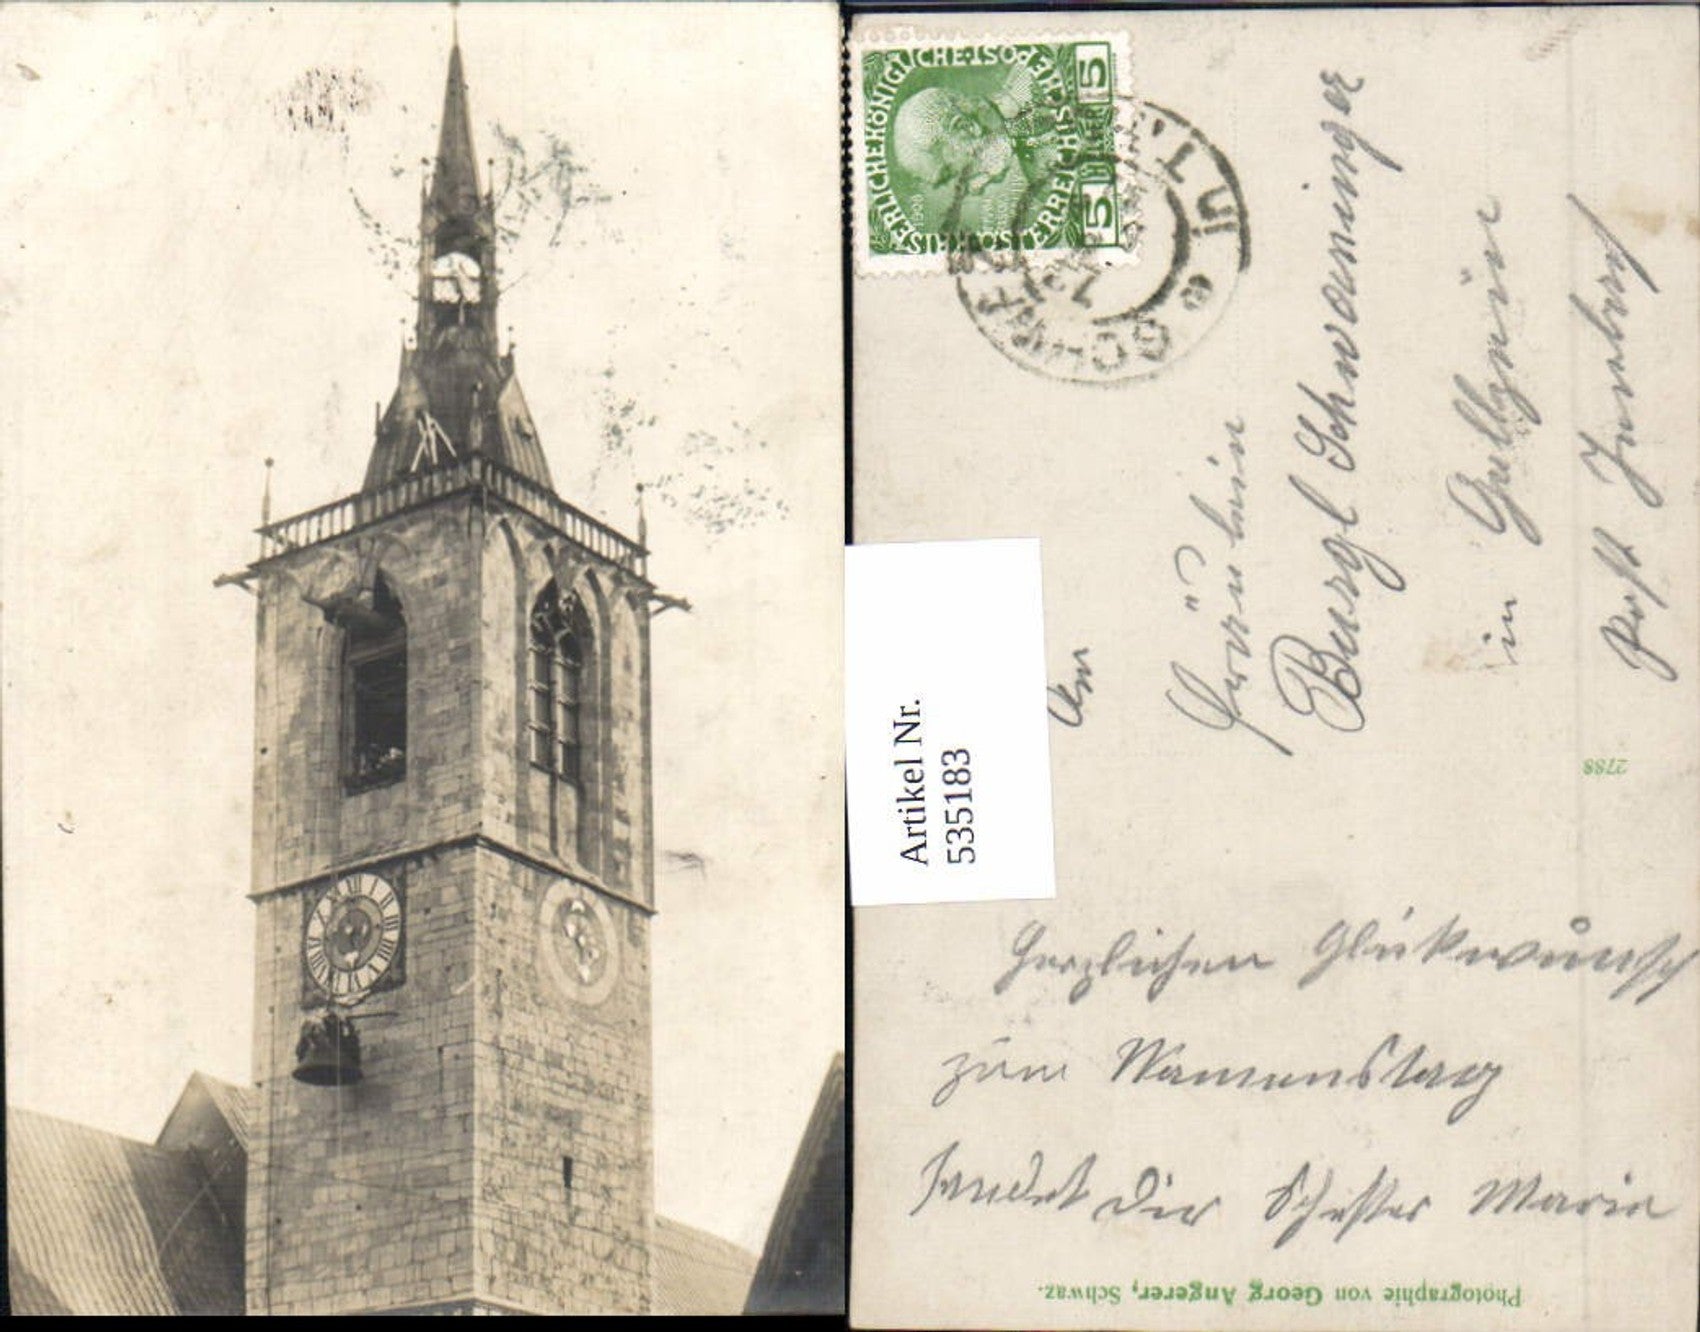 KAISERLICHEKÖNIGLICHE·POST
ÖSTERREICHISCHE
5 HELLER 5
1908
12
Artikel Nr.
5355183
An
Fräulein
Burgl Schwaninger
in
Post
2788
Herzlichen Glückwunsch
zum Namenstag
sendet dir Schester Maria
Photographie von Georg Angerer, Schwaz.